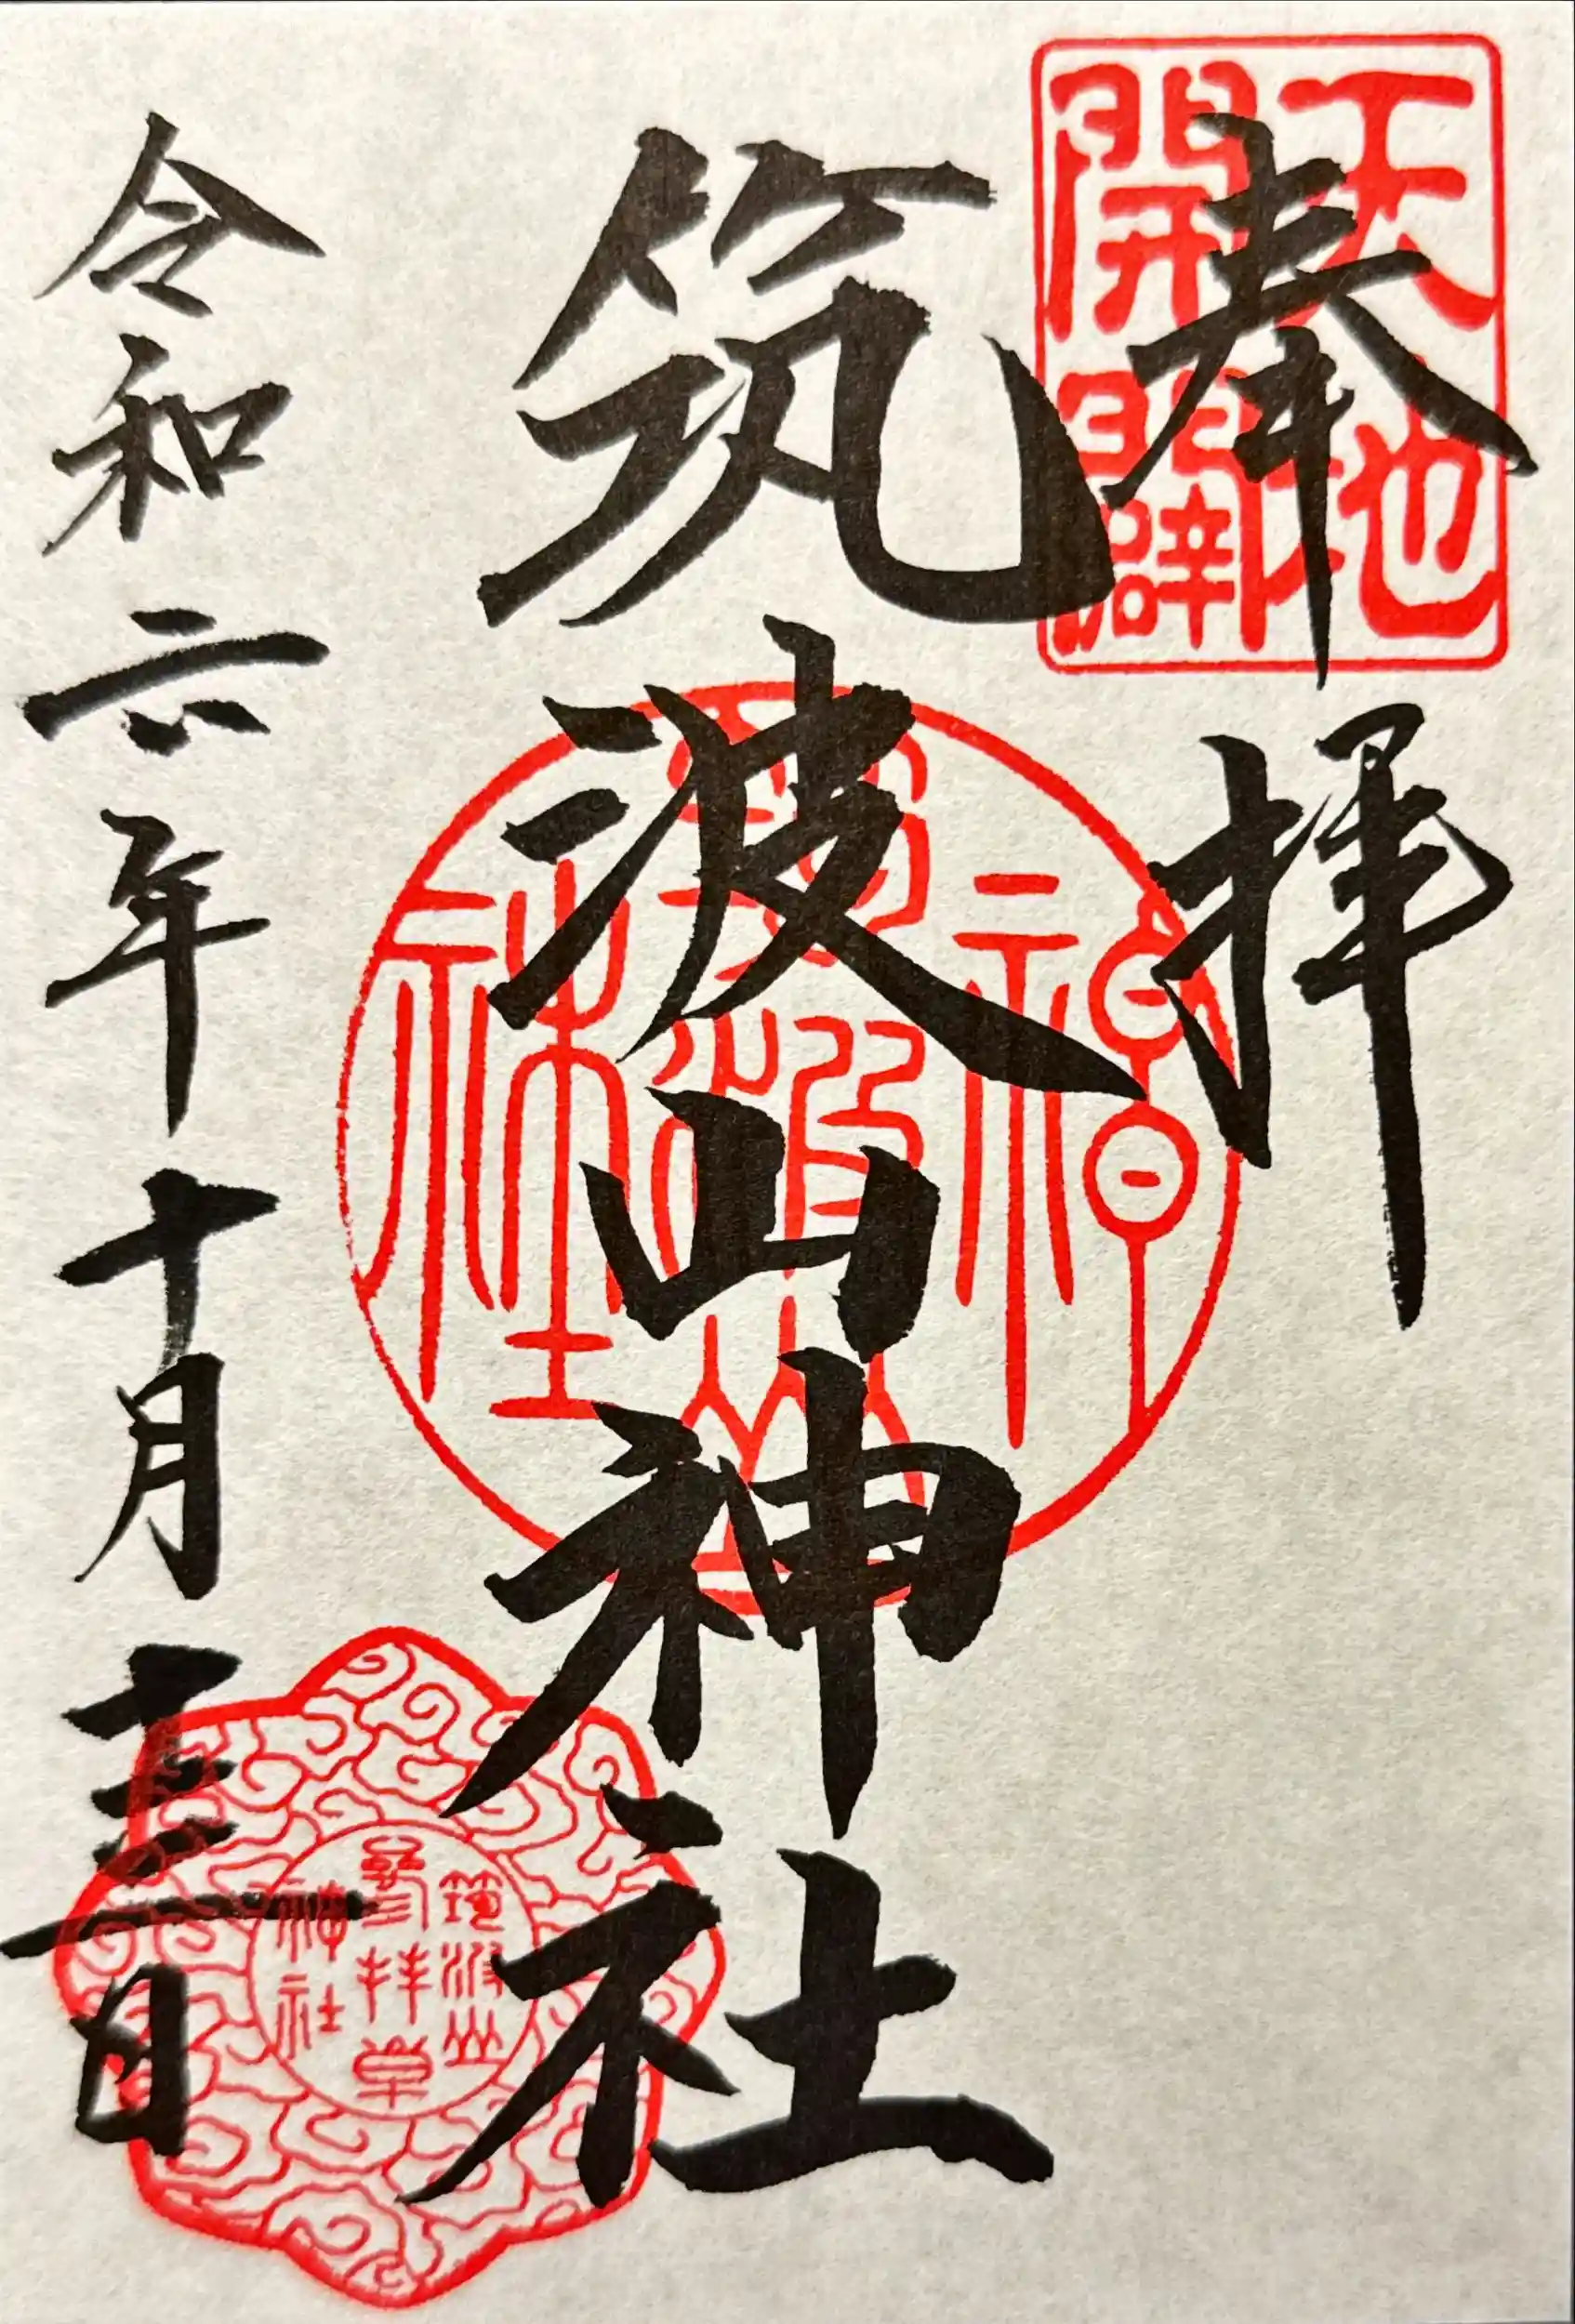 天地
開闢
奉拝
筑波山神社
令和六年十月十三日
神
筑波山
社
筑波山
神社